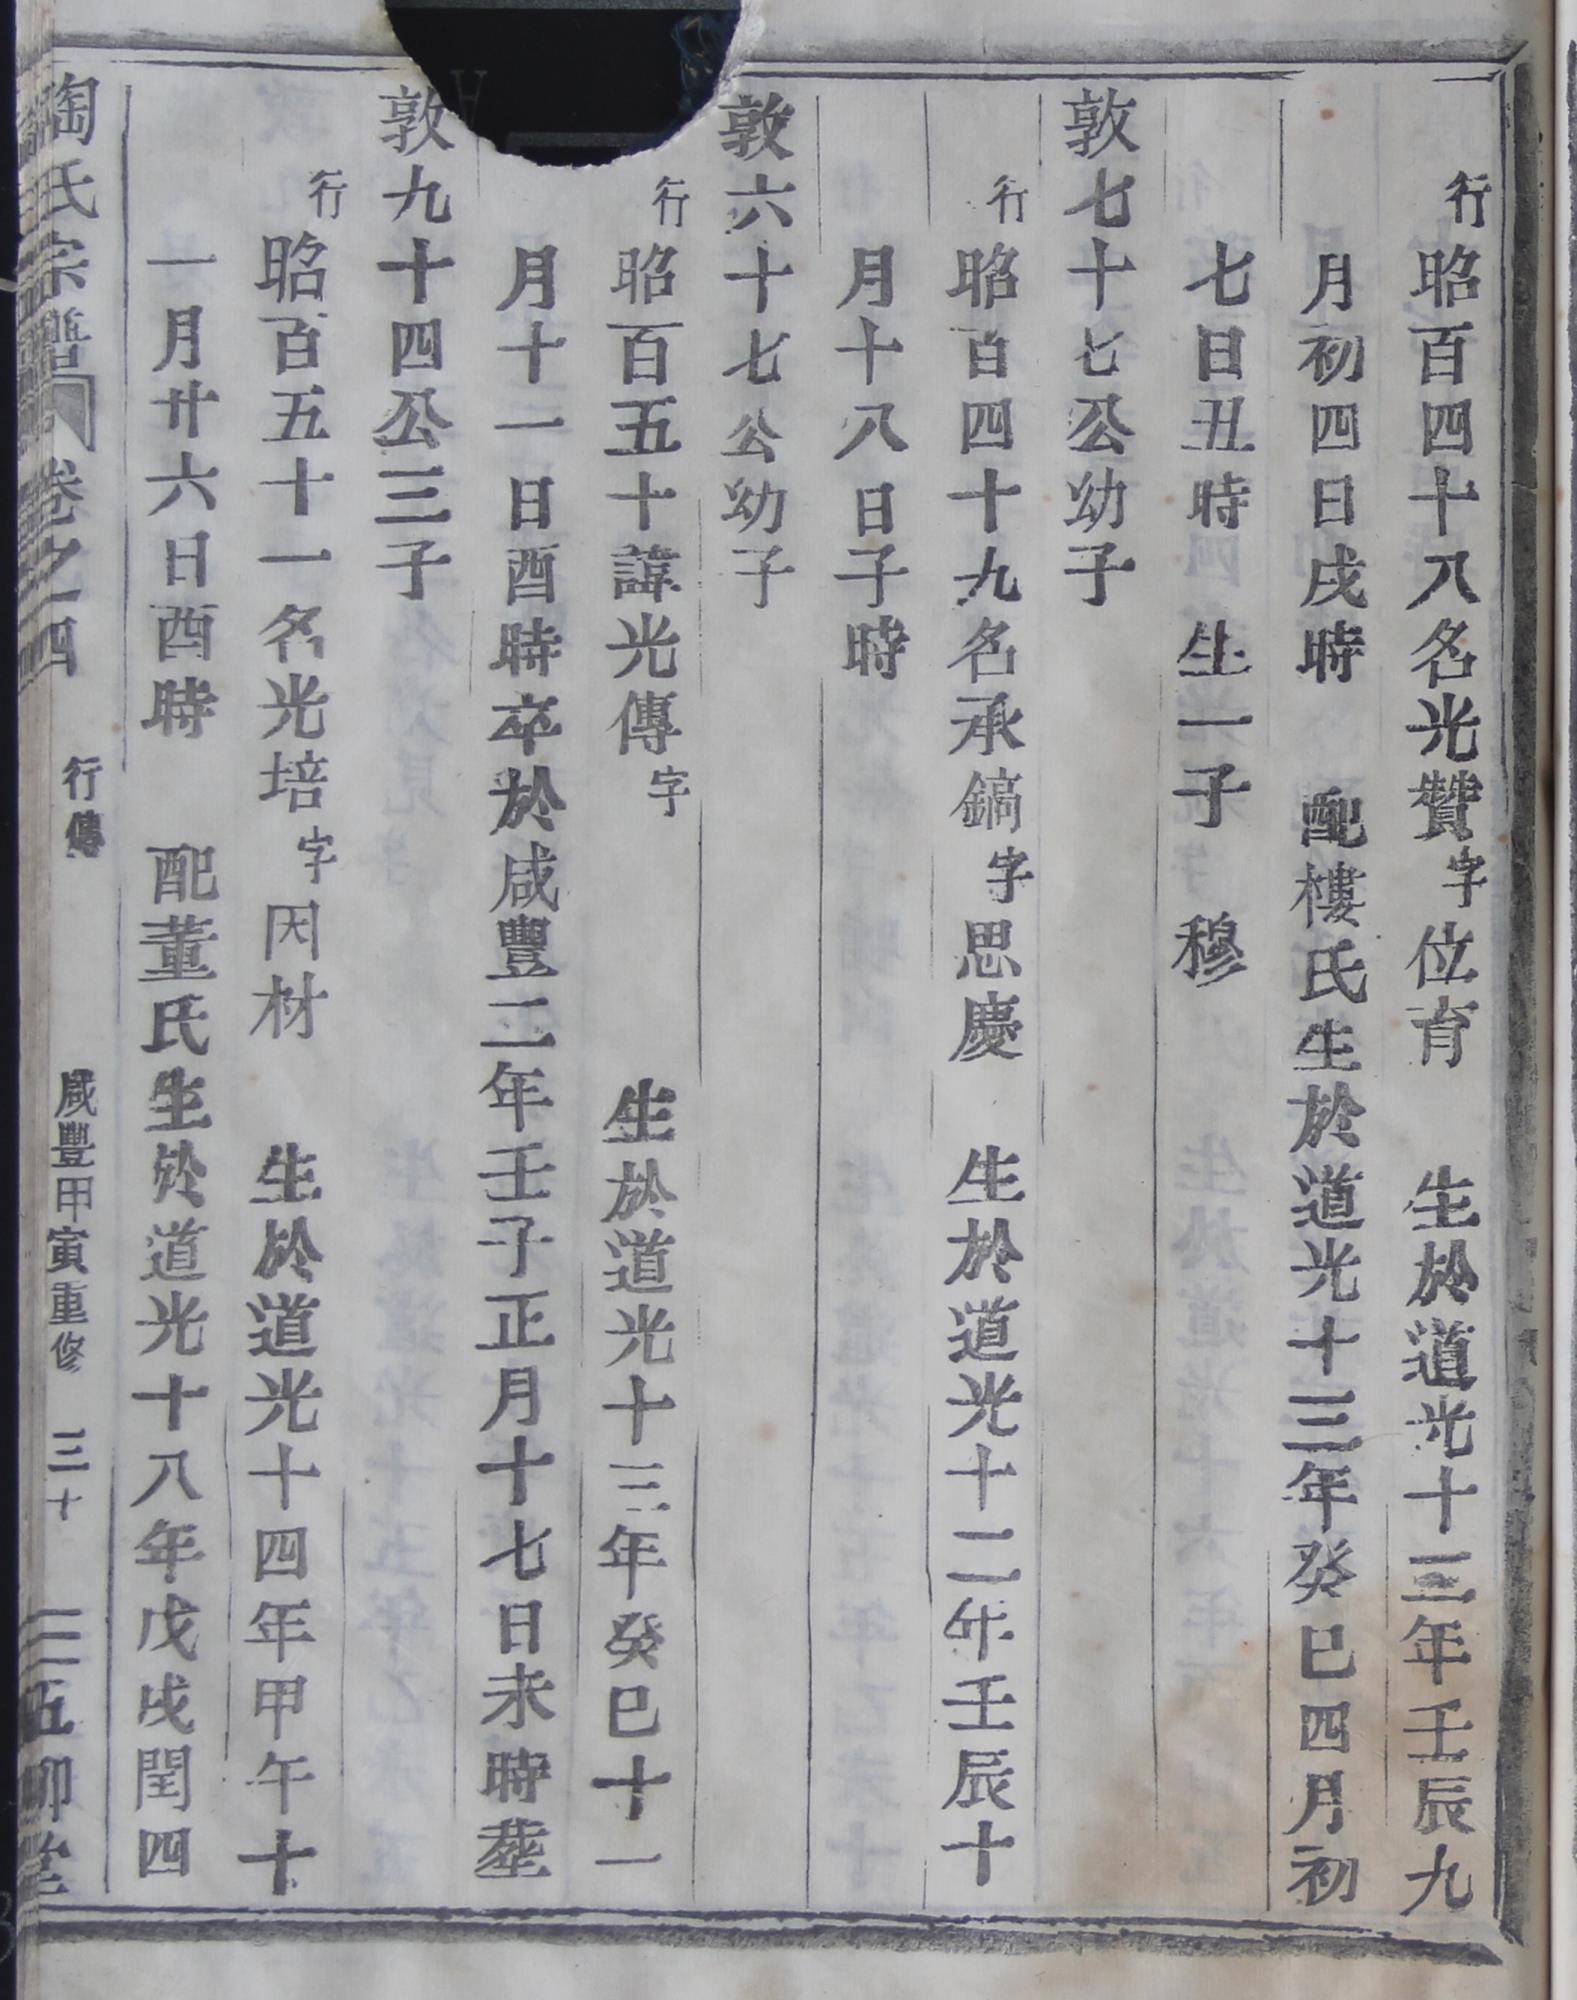 行昭百四十八名光贊字位育　生於道光十三年壬辰九
月初四日戌時　配樓氏生於道光十三年癸巳四月初
七日丑時　生一子　穆
敦七十七公幼子
行昭百四十九名承鎬字思慶　生於道光十二年壬辰十
月十八日子時
敦六十七公幼子
行昭百五十諱光傳字　生於道光十三年癸巳十一
月十一日酉時卒於咸豐二年壬子正月十七日未時塟
敦九十四公三子
行昭百五十一名光培字因材　生於道光十四年甲午十
一月廿六日酉時　配董氏生於道光十八年戊戌閏四
陶氏宗譜　卷之四　行傳　咸豐甲寅重修　三十　五柳堂